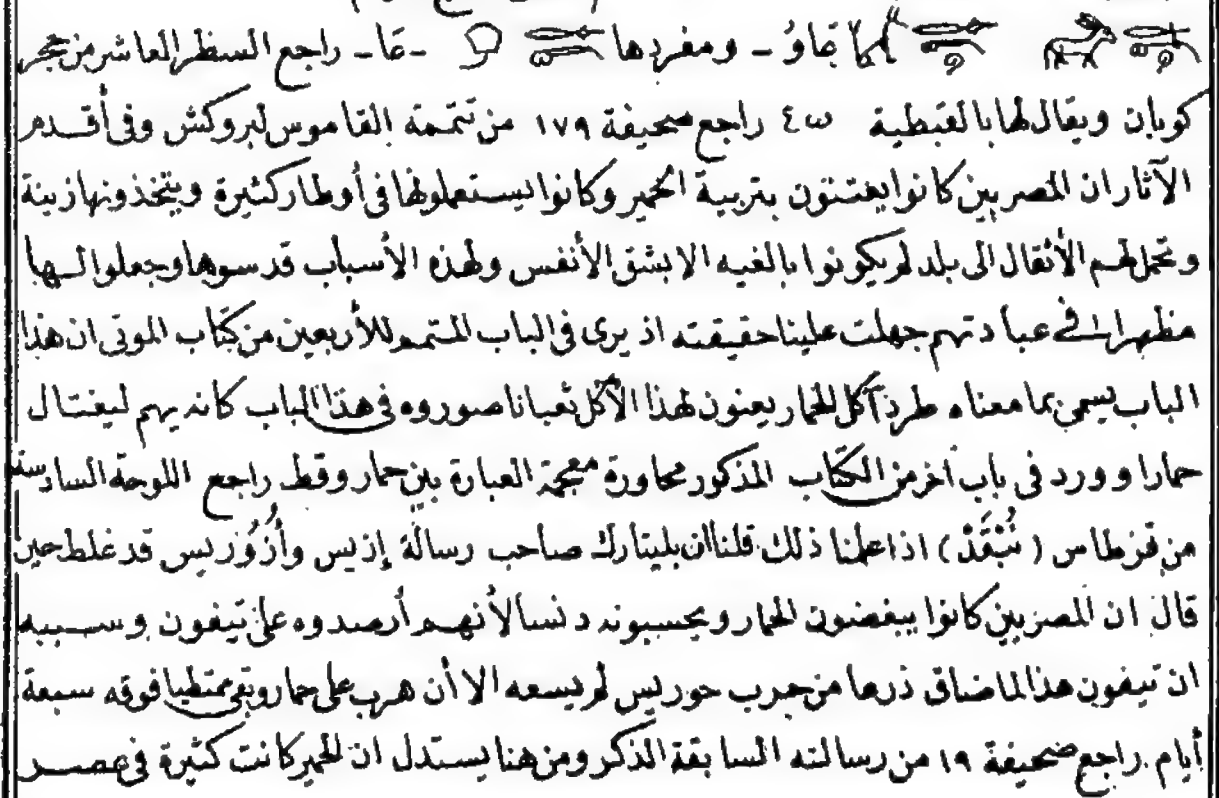 عَاوُ - ومفردها - عَا - راجع السطر العاشر من حجر
كوبان ويقال لها بالقبطية ⲉⲱ راجع صحيفة ١٧٩ من تتمة القاموس لبروكش وفى أقدم
الآثار ان المصريين كانوا يعتنون بتربية الحمير وكانوا يستعملونها فى أوطار كثيرة ويتخذونها زينة
وتحمل لهم الأثقال الى بلد لم يكونوا بالغيه الا بشق الأنفس ولهذه الأسباب قدسوها وجعلوا لها
مظهرا فى عبادتهم جهلت علينا حقيقته اذ يرى فى الباب المتمم للأربعين من كتاب الموتى ان هذا
الباب يسمى بما معناه طرد آكل الحمار يعنون لهذا الأكل ثعبانا صوروه فى هذا الباب كانه يهم ليغتال
حمارا وورد فى باب آخر من الكتاب المذكور محاورة معجمة العبارة بين حمار وقط راجع اللوحة السادسة
من قرطاس ( نُبْقَدْ ) اذا علمنا ذلك قلنا ان بليتارك صاحب رسالة إزيس وأُزُوريس قد غلط حين
قال ان المصريين كانوا يبغضون الحمار ويحسبونه دنسا لأنهم أرصدوه على تيفون وسببه
ان تيفون هذا لما ضاق ذرعا من حرب حوريس لم يسعه الا أن هرب على حمار وبقى ممتطيا فوقه سبعة
أيام . راجع صحيفة ١٩ من رسالته السابقة الذكر ومن هنا يستدل ان الحمير كانت كثيرة فى مصر